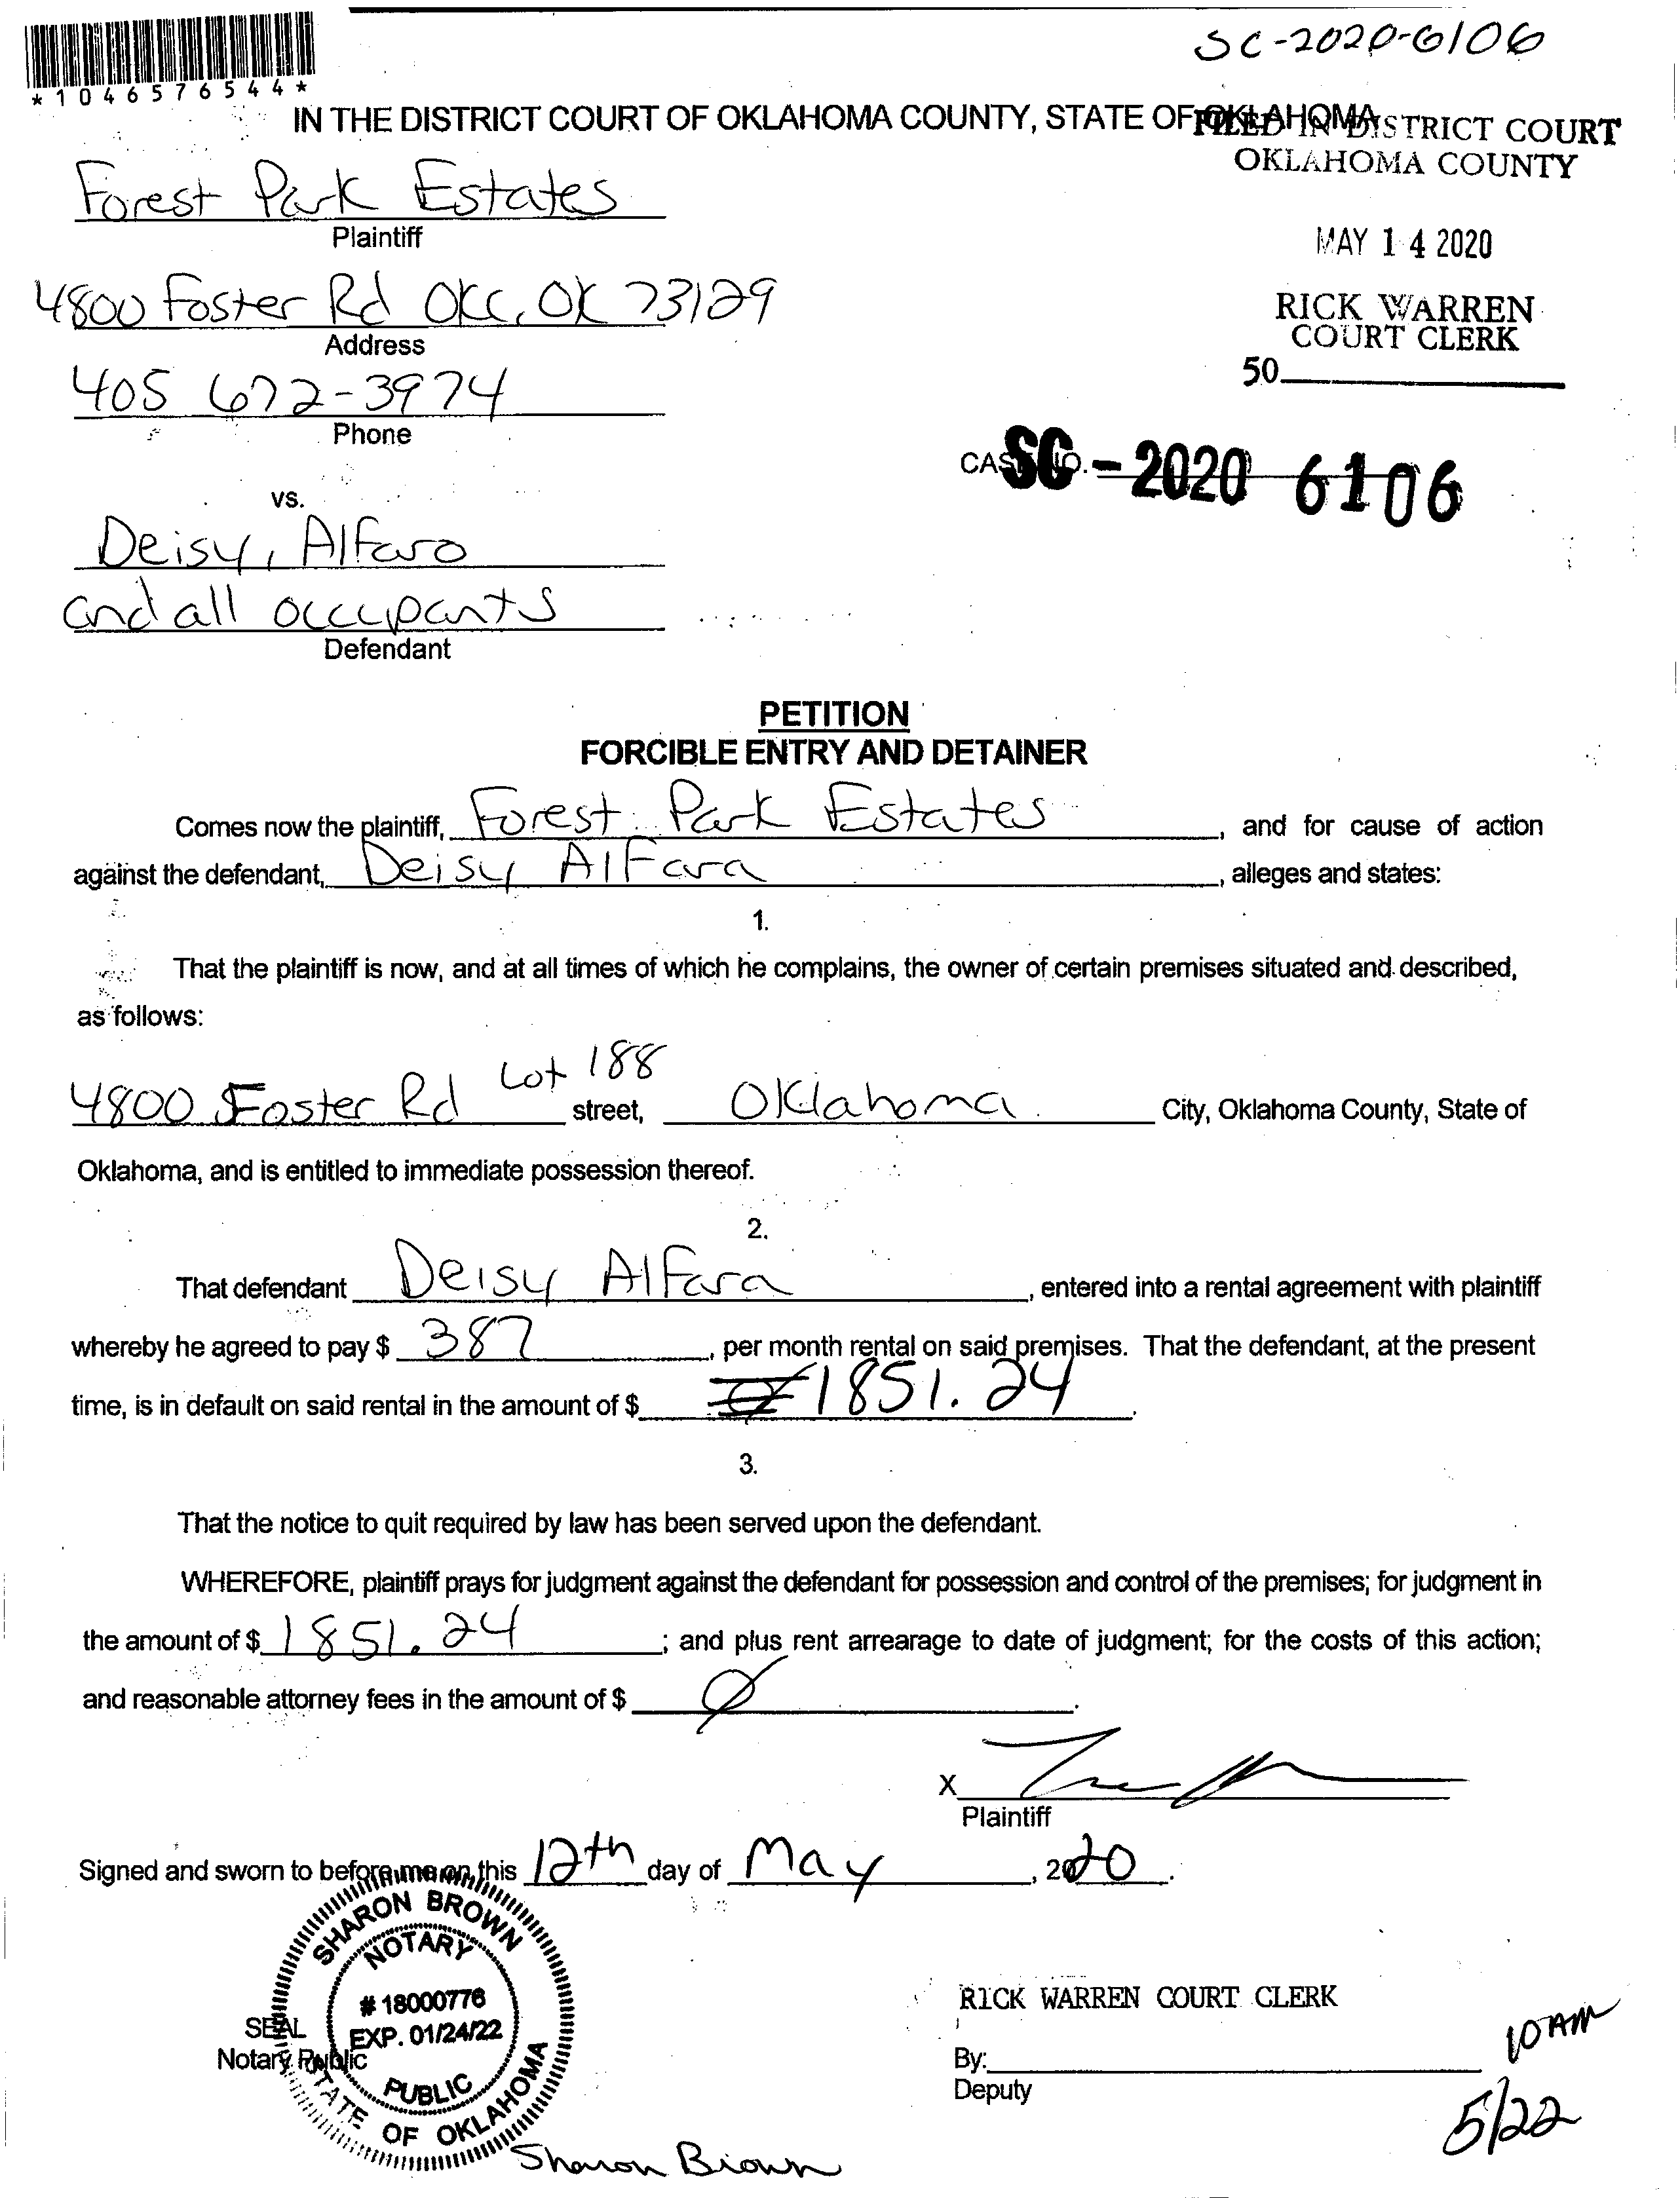 SC-2020-6106
*1046576544*
IN THE DISTRICT COURT OF OKLAHOMA COUNTY, STATE OF OKLAHOMA
FILED IN DISTRICT COURT
OKLAHOMA COUNTY
Forest Park Estates
Plaintiff
MAY 14 2020
4800 Foster Rd OKC, OK 73129
Address
RICK WARREN
COURT CLERK
405 672-3974
Phone
50
CASE NO. SC - 2020 6106
vs.
Deisy, Alfaro
and all occupants
Defendant
PETITION
FORCIBLE ENTRY AND DETAINER
Comes now the plaintiff, Forest Park Estates, and for cause of action
against the defendant, Deisy Alfara, alleges and states:
1.
That the plaintiff is now, and at all times of which he complains, the owner of certain premises situated and described,
as follows:
4800 Foster Rd Lot 188 street, Oklahoma City, Oklahoma County, State of
Oklahoma, and is entitled to immediate possession thereof.
2.
That defendant Deisy Alfara, entered into a rental agreement with plaintiff
whereby he agreed to pay $ 387, per month rental on said premises. That the defendant, at the present
time, is in default on said rental in the amount of $ 1851.24.
3.
That the notice to quit required by law has been served upon the defendant.
WHEREFORE, plaintiff prays for judgment against the defendant for possession and control of the premises; for judgment in
the amount of $ 1851.24; and plus rent arrearage to date of judgment; for the costs of this action;
and reasonable attorney fees in the amount of $ Ø.
X
Plaintiff
Signed and sworn to before me on this 12th day of May, 2020.
SHARON BROWN
NOTARY
# 18000776
EXP. 01/24/22
PUBLIC
STATE OF OKLAHOMA
SEAL
Notary Public
Sharon Brown
RICK WARREN COURT CLERK
By:
Deputy
10 AM
5/22